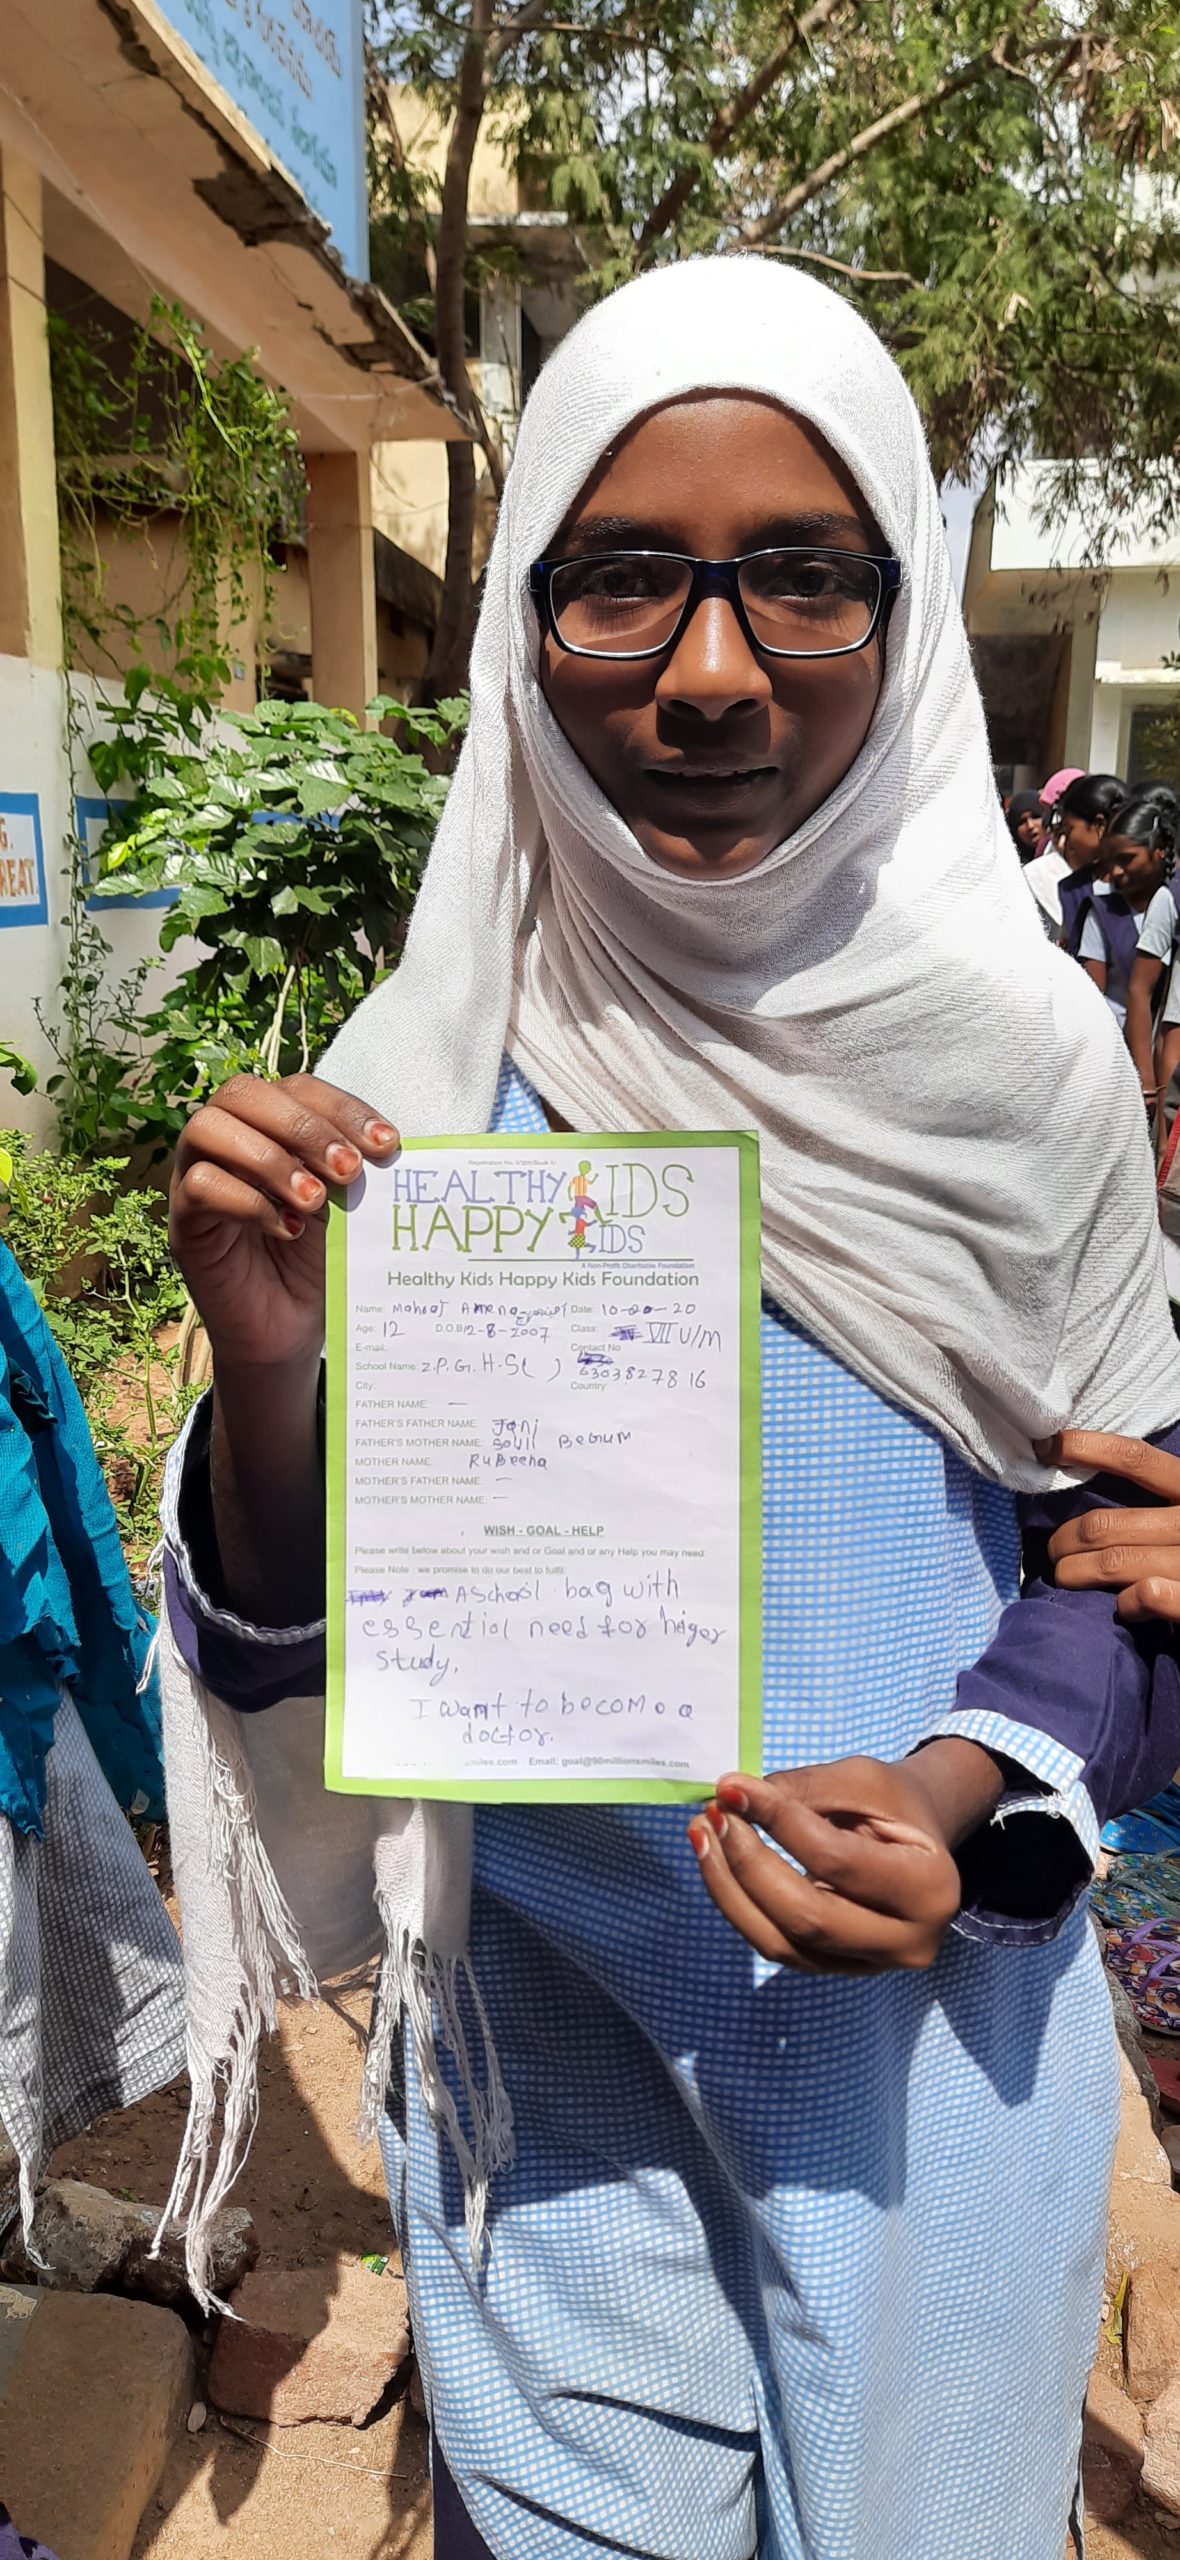 G.
REAT.
HEALTHY KIDS
HAPPY KIDS
A Non-Profit Charitable Foundation
Healthy Kids Happy Kids Foundation
Name: Date: 10-20-20
Age: 12 D.O.B 12-8-2007 Class: VII U/M
E-mail: Contact No
School Name: Z.P.G.H.S( ) 6303827816
City: Country:
FATHER NAME: —
FATHER'S FATHER NAME: Jani
FATHER'S MOTHER NAME: BeGum
MOTHER NAME: RuBeena
MOTHER'S FATHER NAME: —
MOTHER'S MOTHER NAME: —
WISH - GOAL - HELP
Please write below about your wish and or Goal and or any Help you may need:
Please Note : we promise to do our best to fulfil:
A school bag with
essential need for higer
study.
I want to become a
doctor.
miles.com Email: goal@90millionsmiles.com